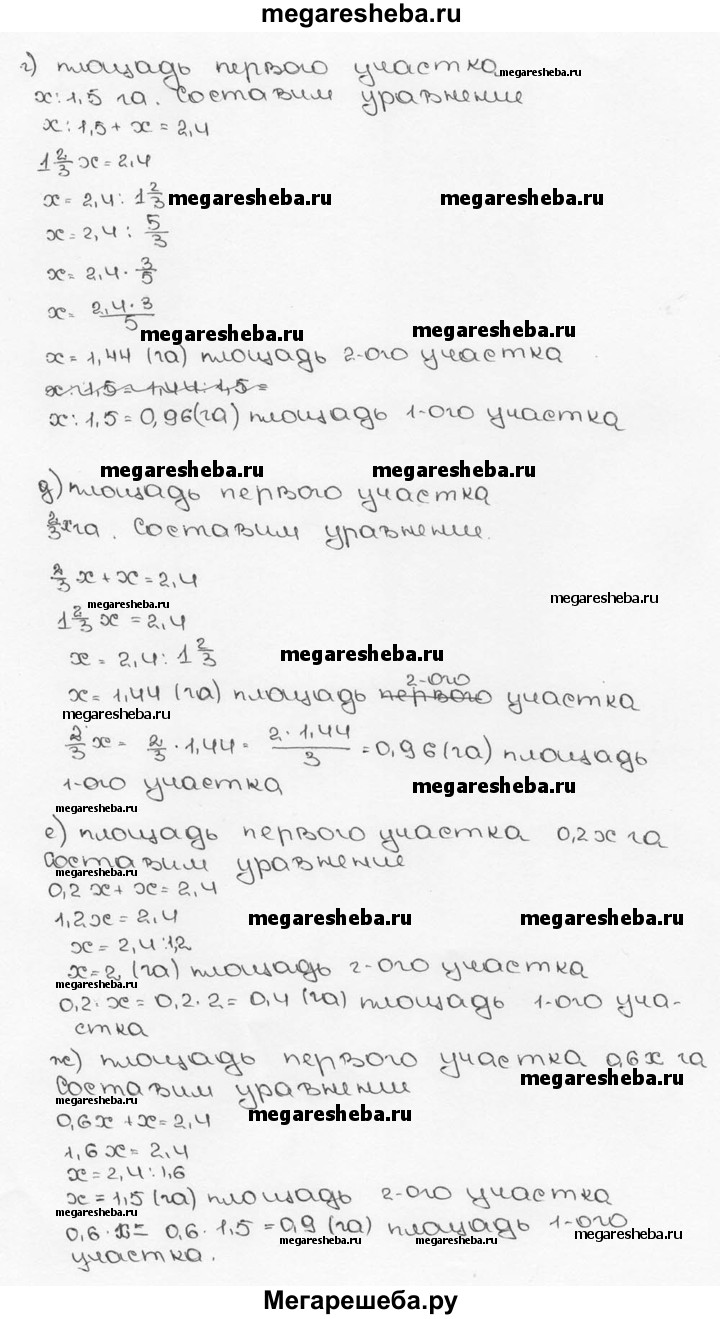 megaresheba.ru
г) площадь первого участка
megaresheba.ru
x:1,5 га. Составим уравнение
x:1,5 + x = 2,4
1 2/3 x = 2,4
x = 2,4 : 1 2/3
megaresheba.ru megaresheba.ru
x = 2,4 : 5/3
x = 2,4 · 3/5
x = 2,4 · 3 / 5
megaresheba.ru megaresheba.ru
x = 1,44 (га) площадь 2-ого участка
x : 1,5 = 1,44 : 1,5 =
x : 1,5 = 0,96 (га) площадь 1-ого участка
megaresheba.ru megaresheba.ru
д) площадь первого участка
2/3 x га. Составим уравнение.
2/3 x + x = 2,4
megaresheba.ru megaresheba.ru
1 2/3 x = 2,4
x = 2,4 : 1 2/3 megaresheba.ru
2-ого
x = 1,44 (га) площадь первого участка
megaresheba.ru
2/3 x = 2/3 · 1,44 = 2 · 1,44 / 3 = 0,96 (га) площадь
1-ого участка megaresheba.ru
megaresheba.ru
е) площадь первого участка 0,2x га
Составим уравнение
megaresheba.ru
0,2 x + x = 2,4
1,2x = 2,4 megaresheba.ru megaresheba.ru
x = 2,4 : 1,2
x = 2 (га) площадь 2-ого участка
megaresheba.ru
0,2 · x = 0,2 · 2 = 0,4 (га) площадь 1-ого уча-
стка
ж) площадь первого участка 0,6x га
megaresheba.ru
Составим уравнение
megaresheba.ru megaresheba.ru
0,6x + x = 2,4
1,6x = 2,4
x = 2,4 : 1,6
x = 1,5 (га) площадь 2-ого участка
megaresheba.ru
0,6 · x = 0,6 · 1,5 = 0,9 (га) площадь 1-ого
megaresheba.ru megaresheba.ru megaresheba.ru
участка.
Мегарешеба.ру